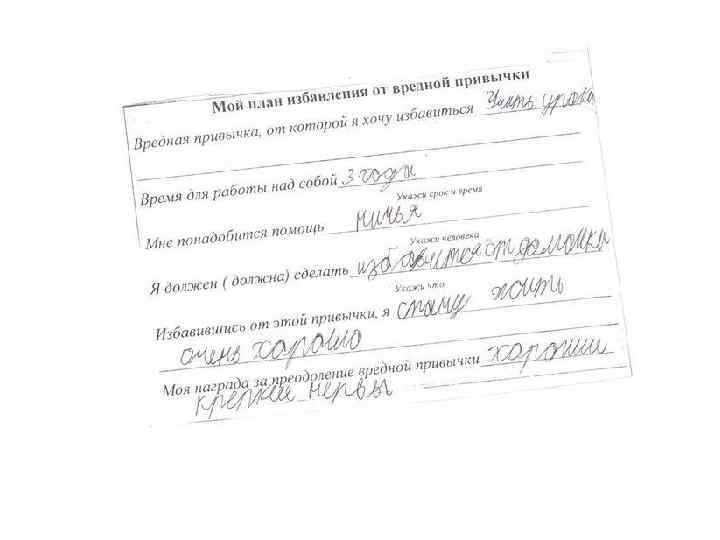 Мой план избавления от вредной привычки
Вредная привычка, от которой я хочу избавиться Учить уроки
Время для работы над собой 3 года
Укажи срок и время
Мне понадобится помощь ничья
Укажи человека
Я должен ( должна) сделать избавится от домашки
Укажи что
Избавившись от этой привычки, я стану жить
очень хорошо
Моя награда за преодоление вредной привычки хорошии
крепкие нервы